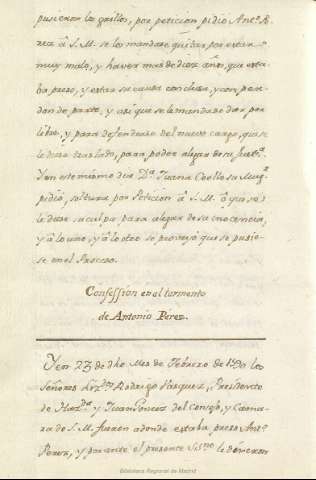 pusieron los grillos, por peticion pidio Antº. P
erez à S. M. se los mandase quitar por estar
muy malo, y haver mas de diez años, que esta-
ba preso, y estar su causa conclusa, y con per-
don de parte, y asi que se le mandase dar por
libre, y para defenderse del nuevo cargo, que se
le diese traslado, para poder alegar de su justª.
Y en este mismo dia Dª. Juana Coello su Mugr.
pidió, soltura por Peticion â S. M. ô q̃ ya se
le diese su culpa para alegar de su inocencia,
y â lo uno, y â lo otro se proveyó que se pusie-
se en el Proceso.
Confession en el tormento
de Antonio Pérez.
Y en 23 de dho Mes de Febrero de 1590 los
Señores Rodrigo Vazquez, Presidente
de Hazdª. y Juan Gomez del Consejo, y Cama-
ra de S. M. fueron adonde estaba preso Antº.
Perez, y por ante el presente Ssnº. le dixeron
Biblioteca Regional de Madrid